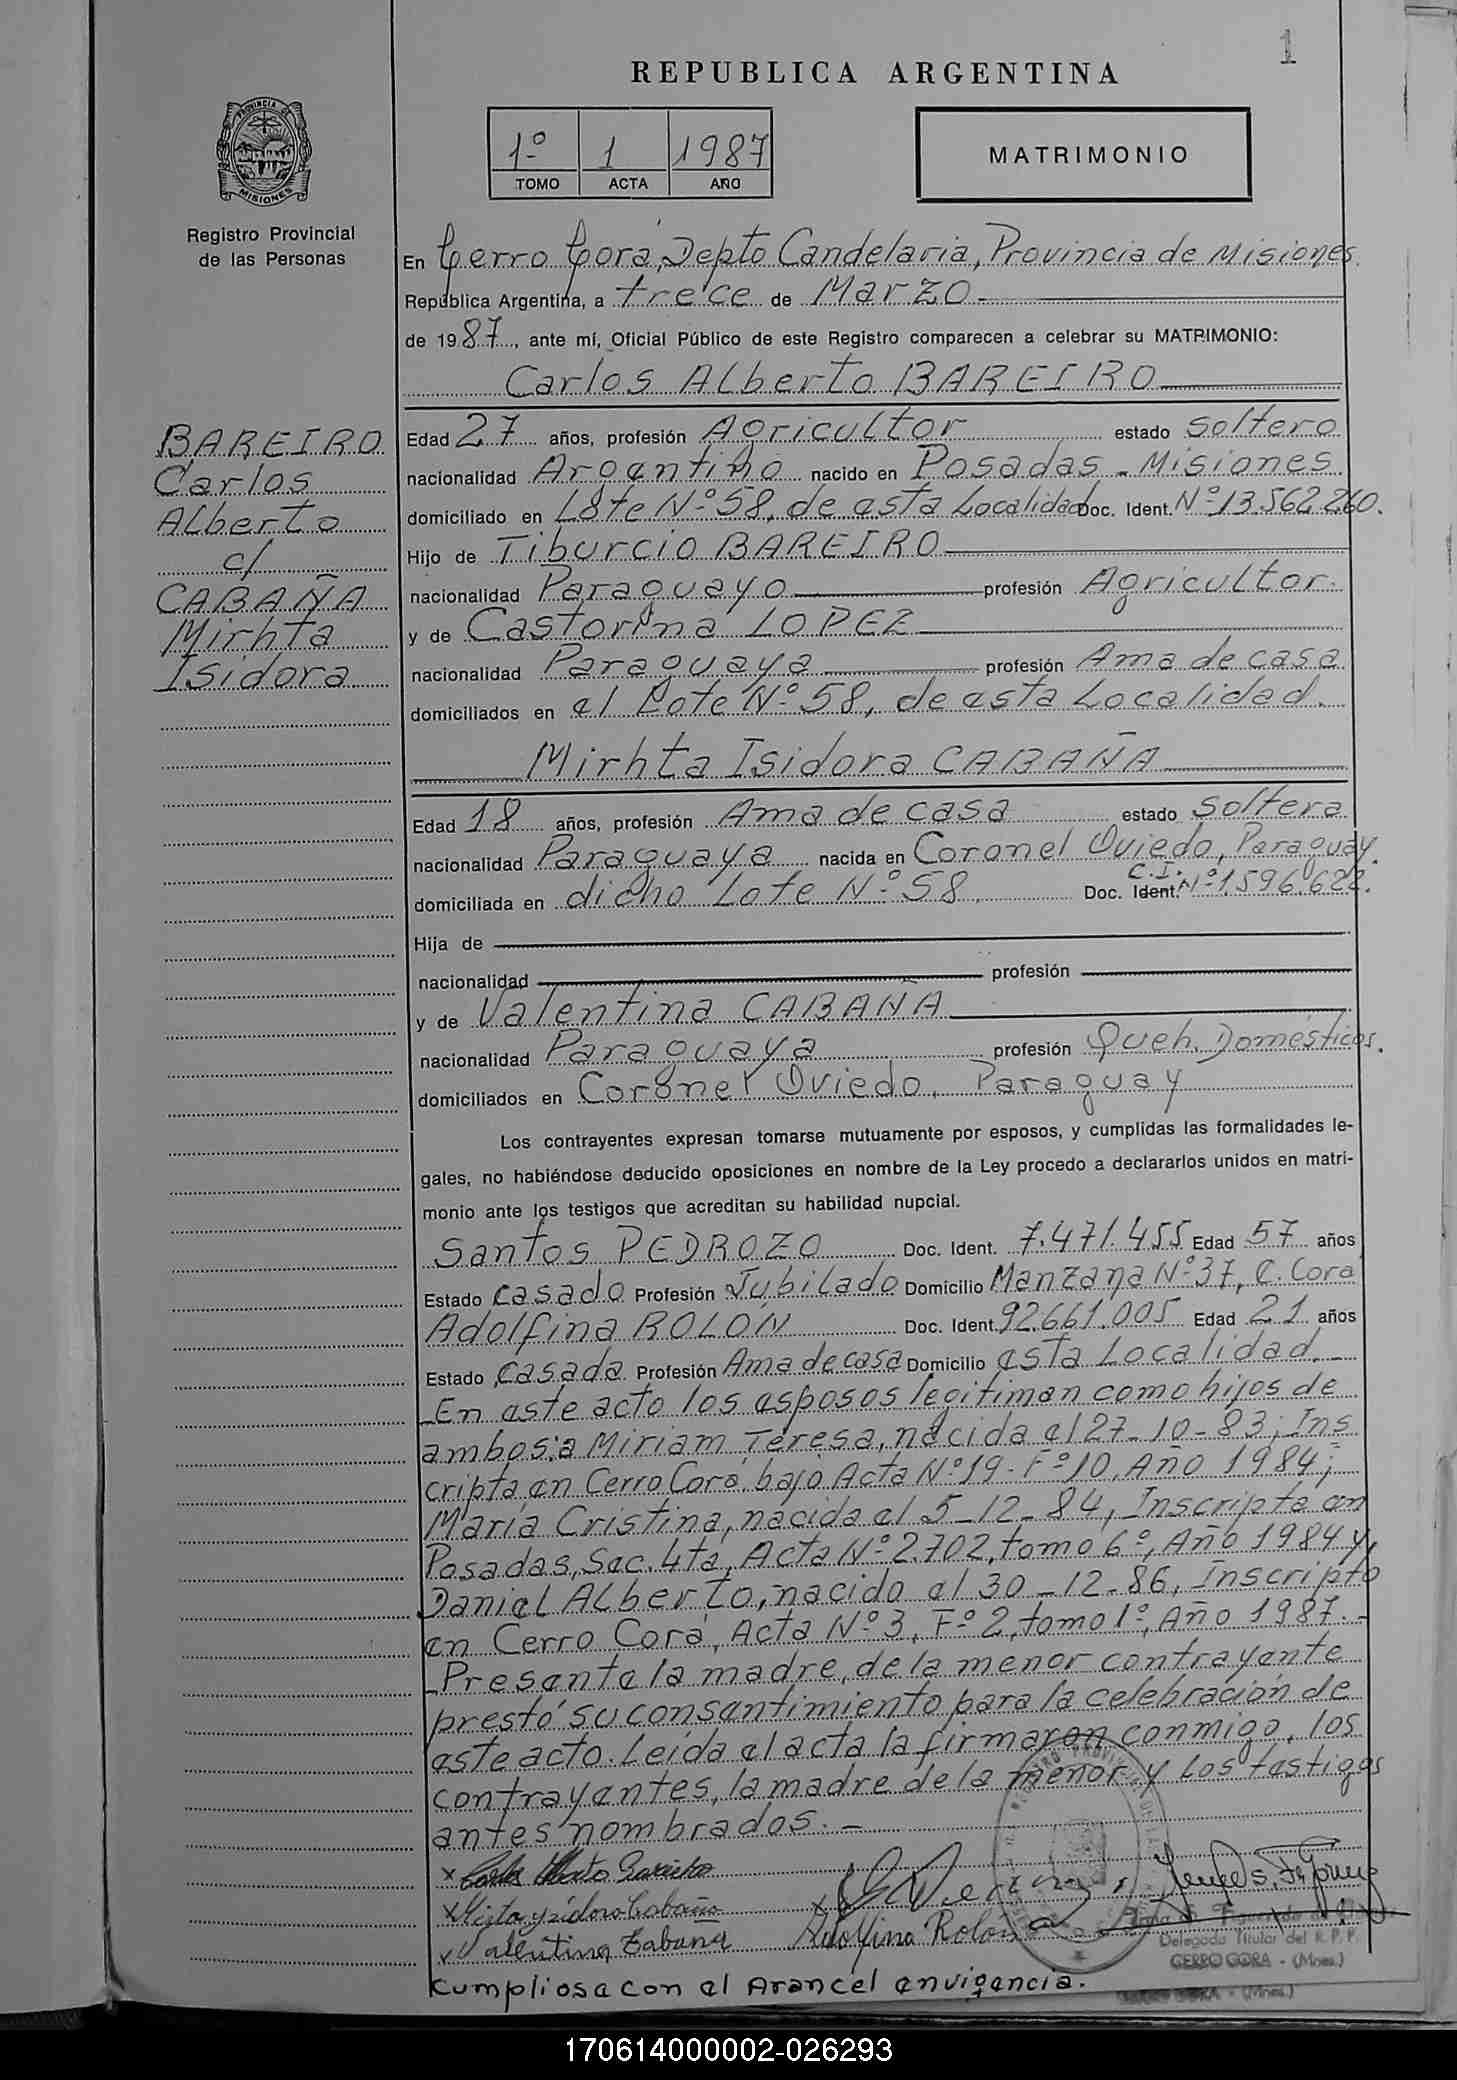 1
REPUBLICA ARGENTINA
PROVINCIA DE
MISIONES
Registro Provincial
de las Personas
1º 1 1987
TOMO ACTA AÑO
MATRIMONIO
En Cerro Corá, Depto Candelaria, Provincia de Misiones
República Argentina, a trece de Marzo
de 1987, ante mí, Oficial Público de este Registro comparecen a celebrar su MATRIMONIO:
Carlos Alberto BAREIRO
BAREIRO
Carlos
Alberto
c/
CABAÑA
Mirhta
Isidora
Edad 27 años, profesión Agricultor estado soltero
nacionalidad Argentino nacido en Posadas - Misiones
domiciliado en Lote Nº 58, de esta Localidad Doc. Ident. Nº 13.562.260.
Hijo de Tiburcio BAREIRO
nacionalidad Paraguayo profesión Agricultor.
y de Castorina LOPEZ
nacionalidad Paraguaya profesión Ama de casa
domiciliados en el Lote Nº 58, de esta Localidad.
Mirhta Isidora CABAÑA
Edad 18 años, profesión Ama de casa estado soltera
nacionalidad Paraguaya nacida en Coronel Oviedo, Paraguay.
domiciliada en dicho Lote Nº 58. Doc. Ident. C.I. Nº 1.596.622.
Hija de
nacionalidad profesión
y de Valentina CABAÑA
nacionalidad Paraguaya profesión Queh. Domésticos.
domiciliados en Coronel Oviedo, Paraguay
Los contrayentes expresan tomarse mutuamente por esposos, y cumplidas las formalidades le-
gales, no habiéndose deducido oposiciones en nombre de la Ley procedo a declararlos unidos en matri-
monio ante los testigos que acreditan su habilidad nupcial.
Santos PEDROZO Doc. Ident. 7.471.455 Edad 57 años
Estado casado Profesión Jubilado Domicilio Manzana Nº 37, C. Corá
Adolfina ROLON Doc. Ident. 92.661.005 Edad 21 años
Estado casada Profesión Ama de casa Domicilio esta Localidad.-
-En este acto los esposos legitiman como hijos de
ambos:a Miriam Teresa, nacida el 27-10-83; Ins
cripta en Cerro Corá, bajo Acta Nº 19. Fº 10, Año 1984;
María Cristina, nacida el 5-12-84, Inscripta en
Posadas, Sec. 4ta, Acta Nº 2.702, tomo 6º, Año 1984 y
Daniel Alberto, nacido el 30-12-86, Inscripto
en Cerro Corá, Acta Nº 3, Fº 2, tomo 1º, Año 1987.-
-Presente la madre de la menor contrayente
prestó su consentimiento para la celebración de
este acto. Leída el acta la firmaron conmigo, los
contrayentes, la madre de la menor y los testigos
antes nombrados.-
x Carlos Alberto Bareiro
x Mirta ysidora Cabaña
x Valentina Cabaña Adolfina Rolon
Delegada Titular del R. P. P.
CERRO CORA - (Mnes.)
Cumpliose con el Arancel en vigencia.
170614000002-026293